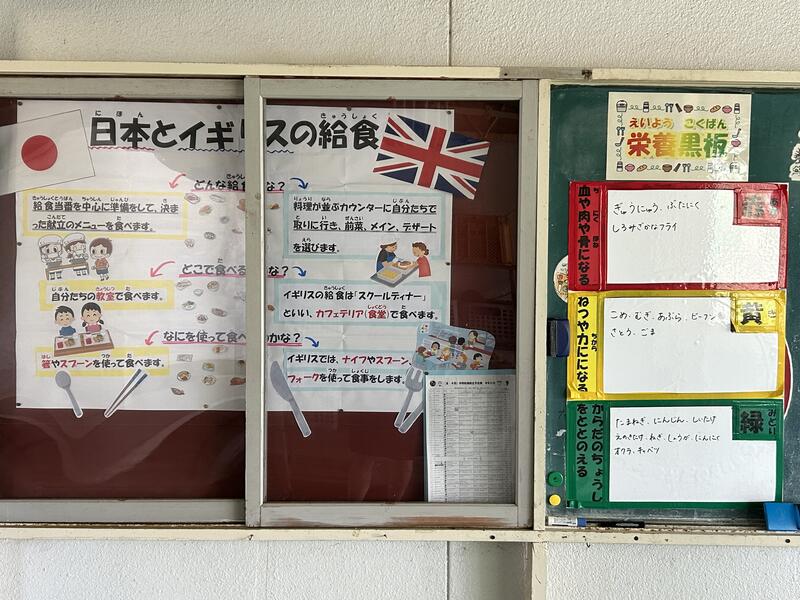 日本とイギリスの給食
どんな給食な?
給食当番を中心に準備をして、決ま
った献立のメニューを食べます。
料理が並ぶカウンターに自分たちで
取りに行き、前菜、メイン、デザート
を選びます。
どこで食べるな?
自分たちの教室で食べます。
イギリスの給食は「スクールディナー」
といい、カフェテリア(食堂)で食べます。
なにを使って食べかな?
箸やスプーンを使って食べます。
イギリスでは、ナイフやスプーン、
フォークを使って食事をします。
えいよう こくばん
栄養黒板
血や肉や骨になる
赤
ぎゅうにゅう、ぶたにく
しろみざかなフライ
ねつや力になる
黄
こめ、むぎ、あぶら、ビーフン
さとう、ごま
からだのちょうし
をととのえる
緑
たまねぎ、にんじん、しいたけ
えのきたけ、ねぎ、しょうが、にんにく
オクラ、キャベツ